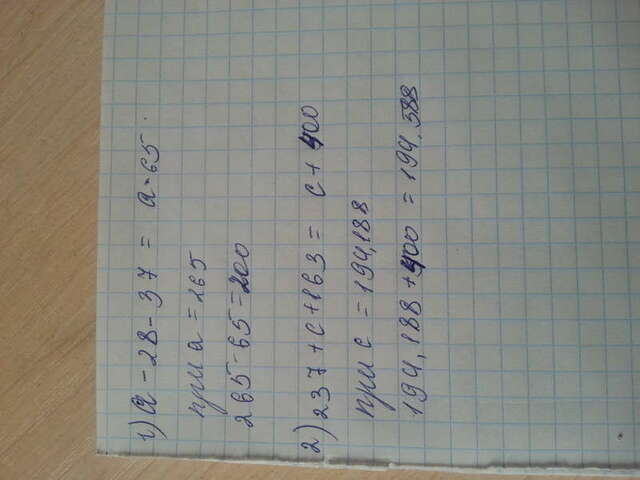 1) a - 28 - 37 = a - 65.
при a = 265
265 - 65 = 200
2) 237 + c + 163 = c + 400
при c = 194,188
194,188 + 400 = 194.588